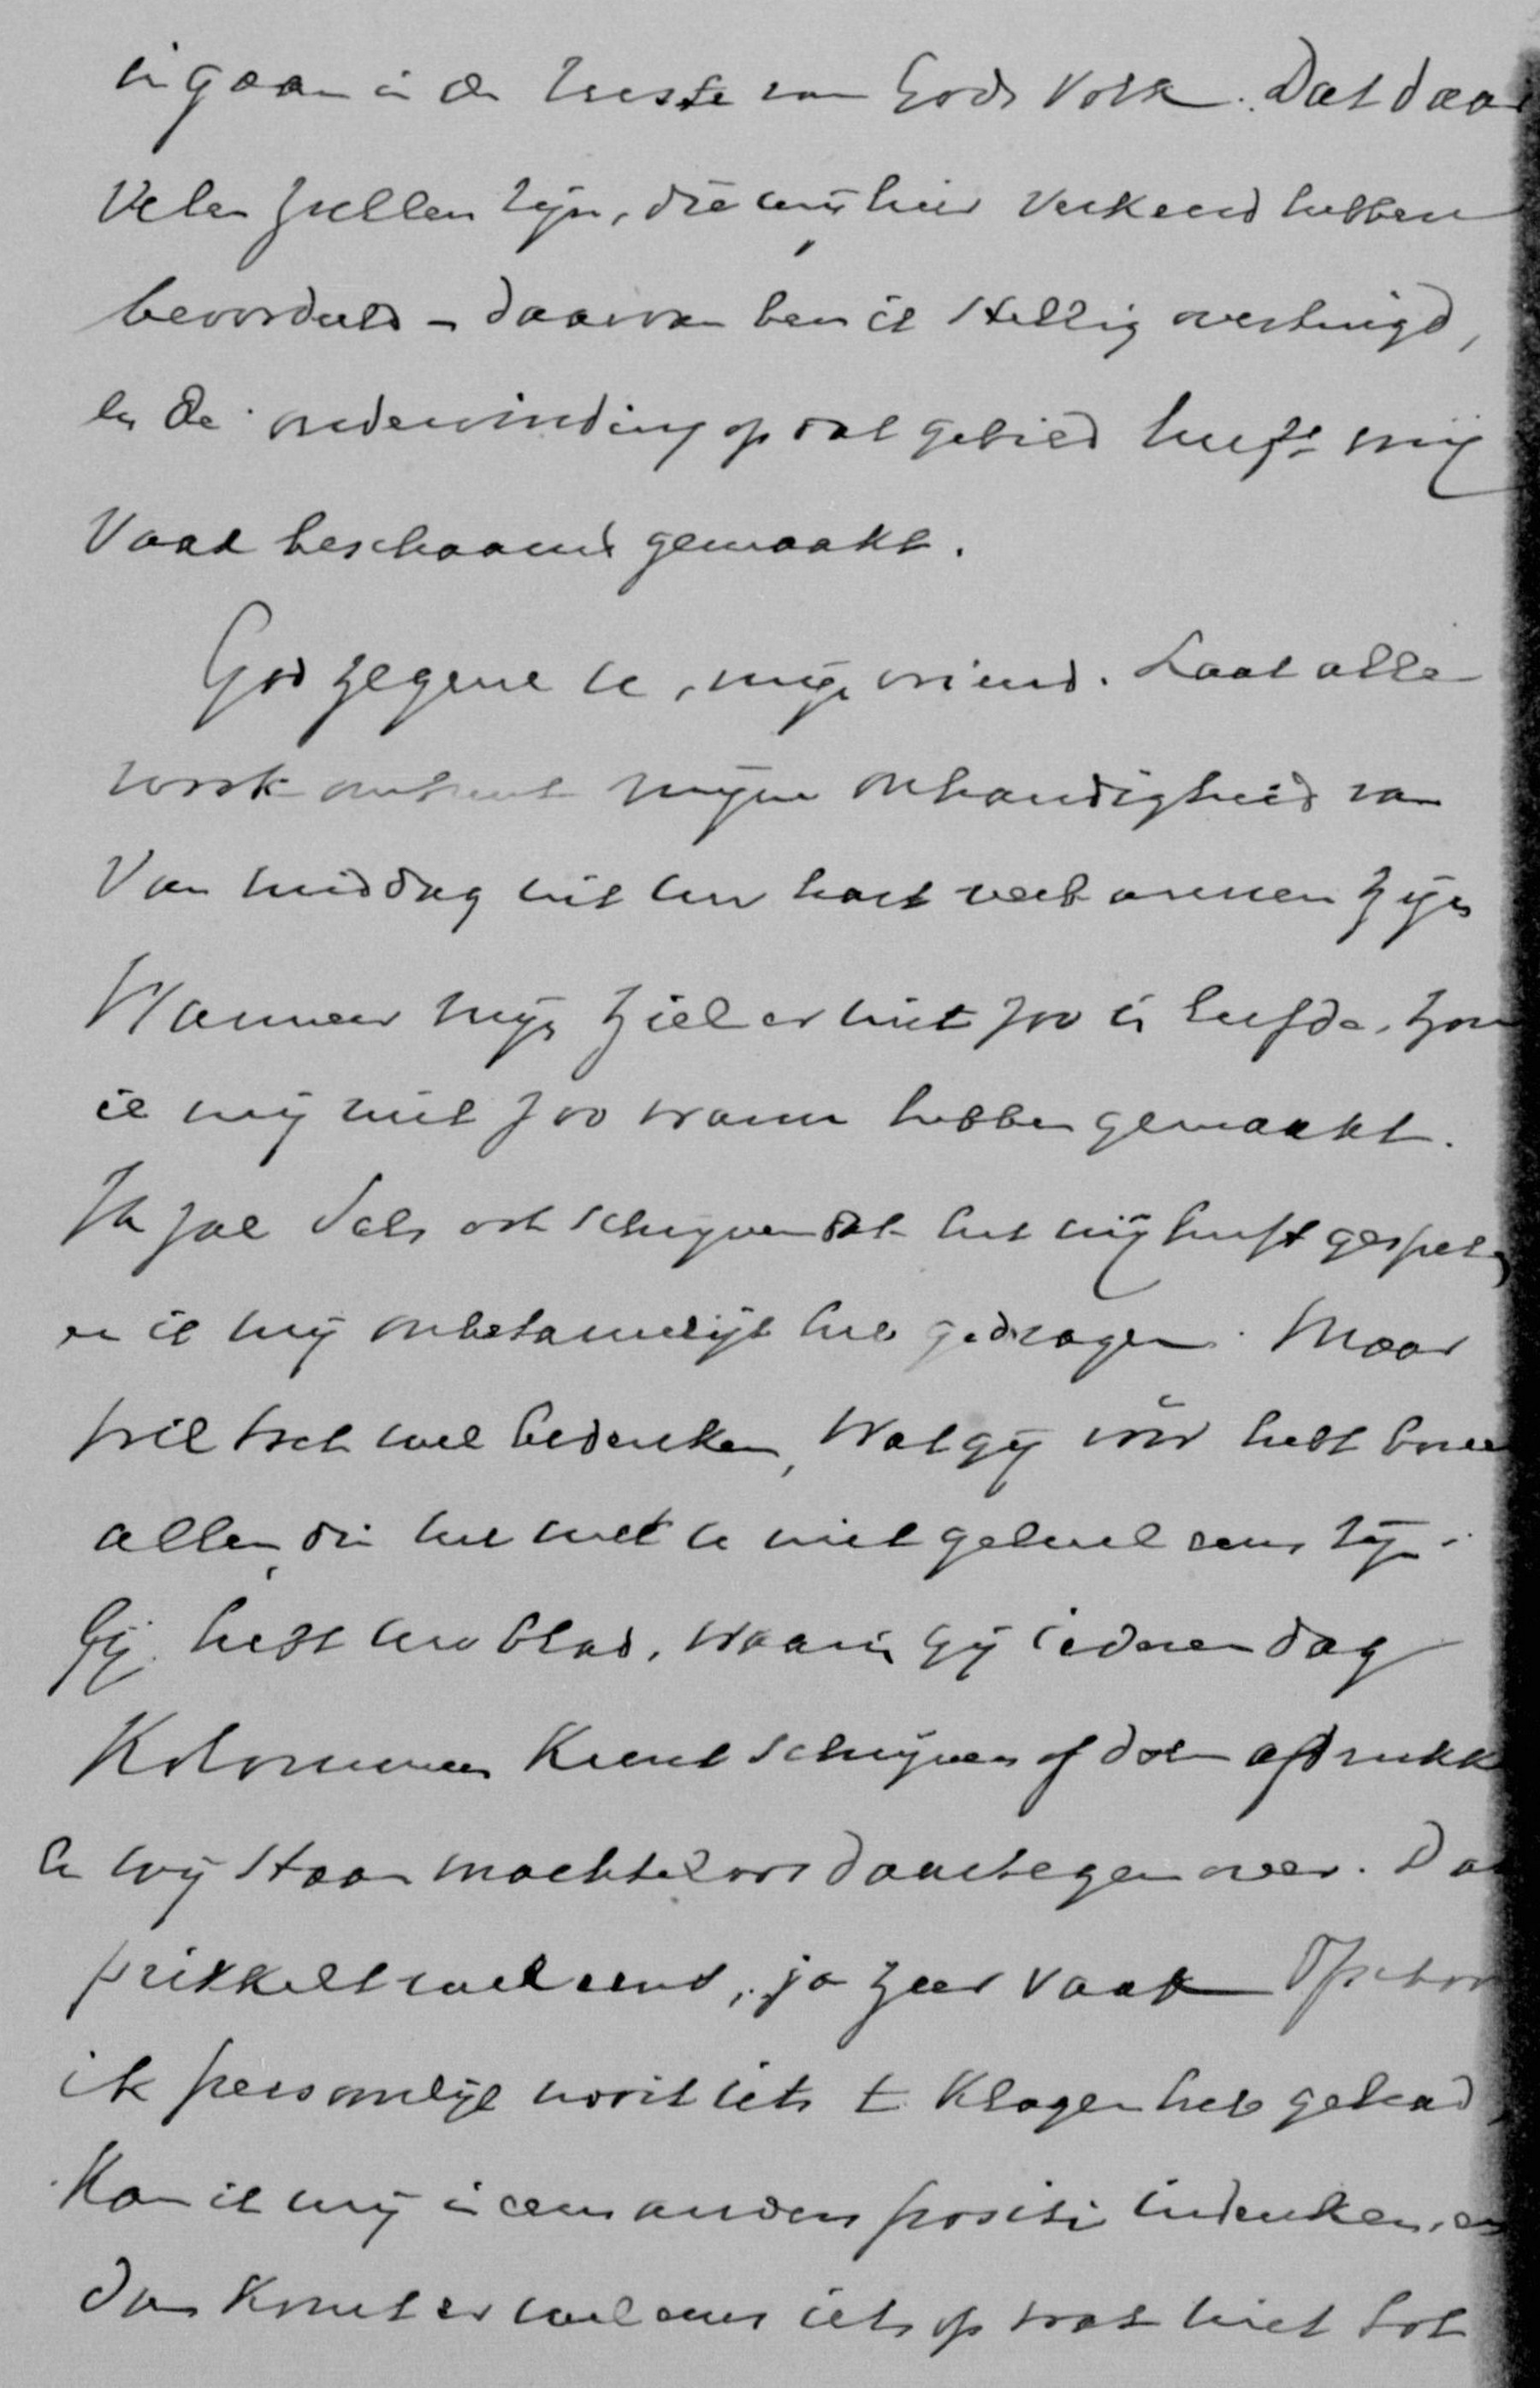 ingaan in de ruste van Gods Volk. Dat daar
Velen zullen zijn, die wij hier verkeerd hebben
beoordeeld - daarvan ben ik stellig overtuigd,
en de ondervinding op dat gebied heeft mij
Vaak beschaamd gemaakt.
God zegene U, mijn vriend. Laat alle
wrok omtrent mijne onhandigheid van
Van middag uit uw hart verbannen zijn
Wanneer mijn ziel er niet zoo in leefde, zou
ik mij niet zoo warm hebben gemaakt.
Ik zal Sels ook schrijven dat het mij heeft gespeten
en ik mij onbetamelijk heb gedragen. Maar
wil toch wel bedenken, Wat gij vóór hebt boven
allen, die het met U niet geheel eens zijn.
Gij hebt uw blad, waarin gij iederen dag
Kolommen kunt schrijven of doen afdrukk
en wij staan machteloos daartegenover. Dat
prikkelt wel eens, ja zeer vaak Ofschoon
ik persoonlijk nooit iets te klagen heb gehad,
Kan ik mij in eens anders positie indenken, en
dan komt er wel eens iets op wat niet tot